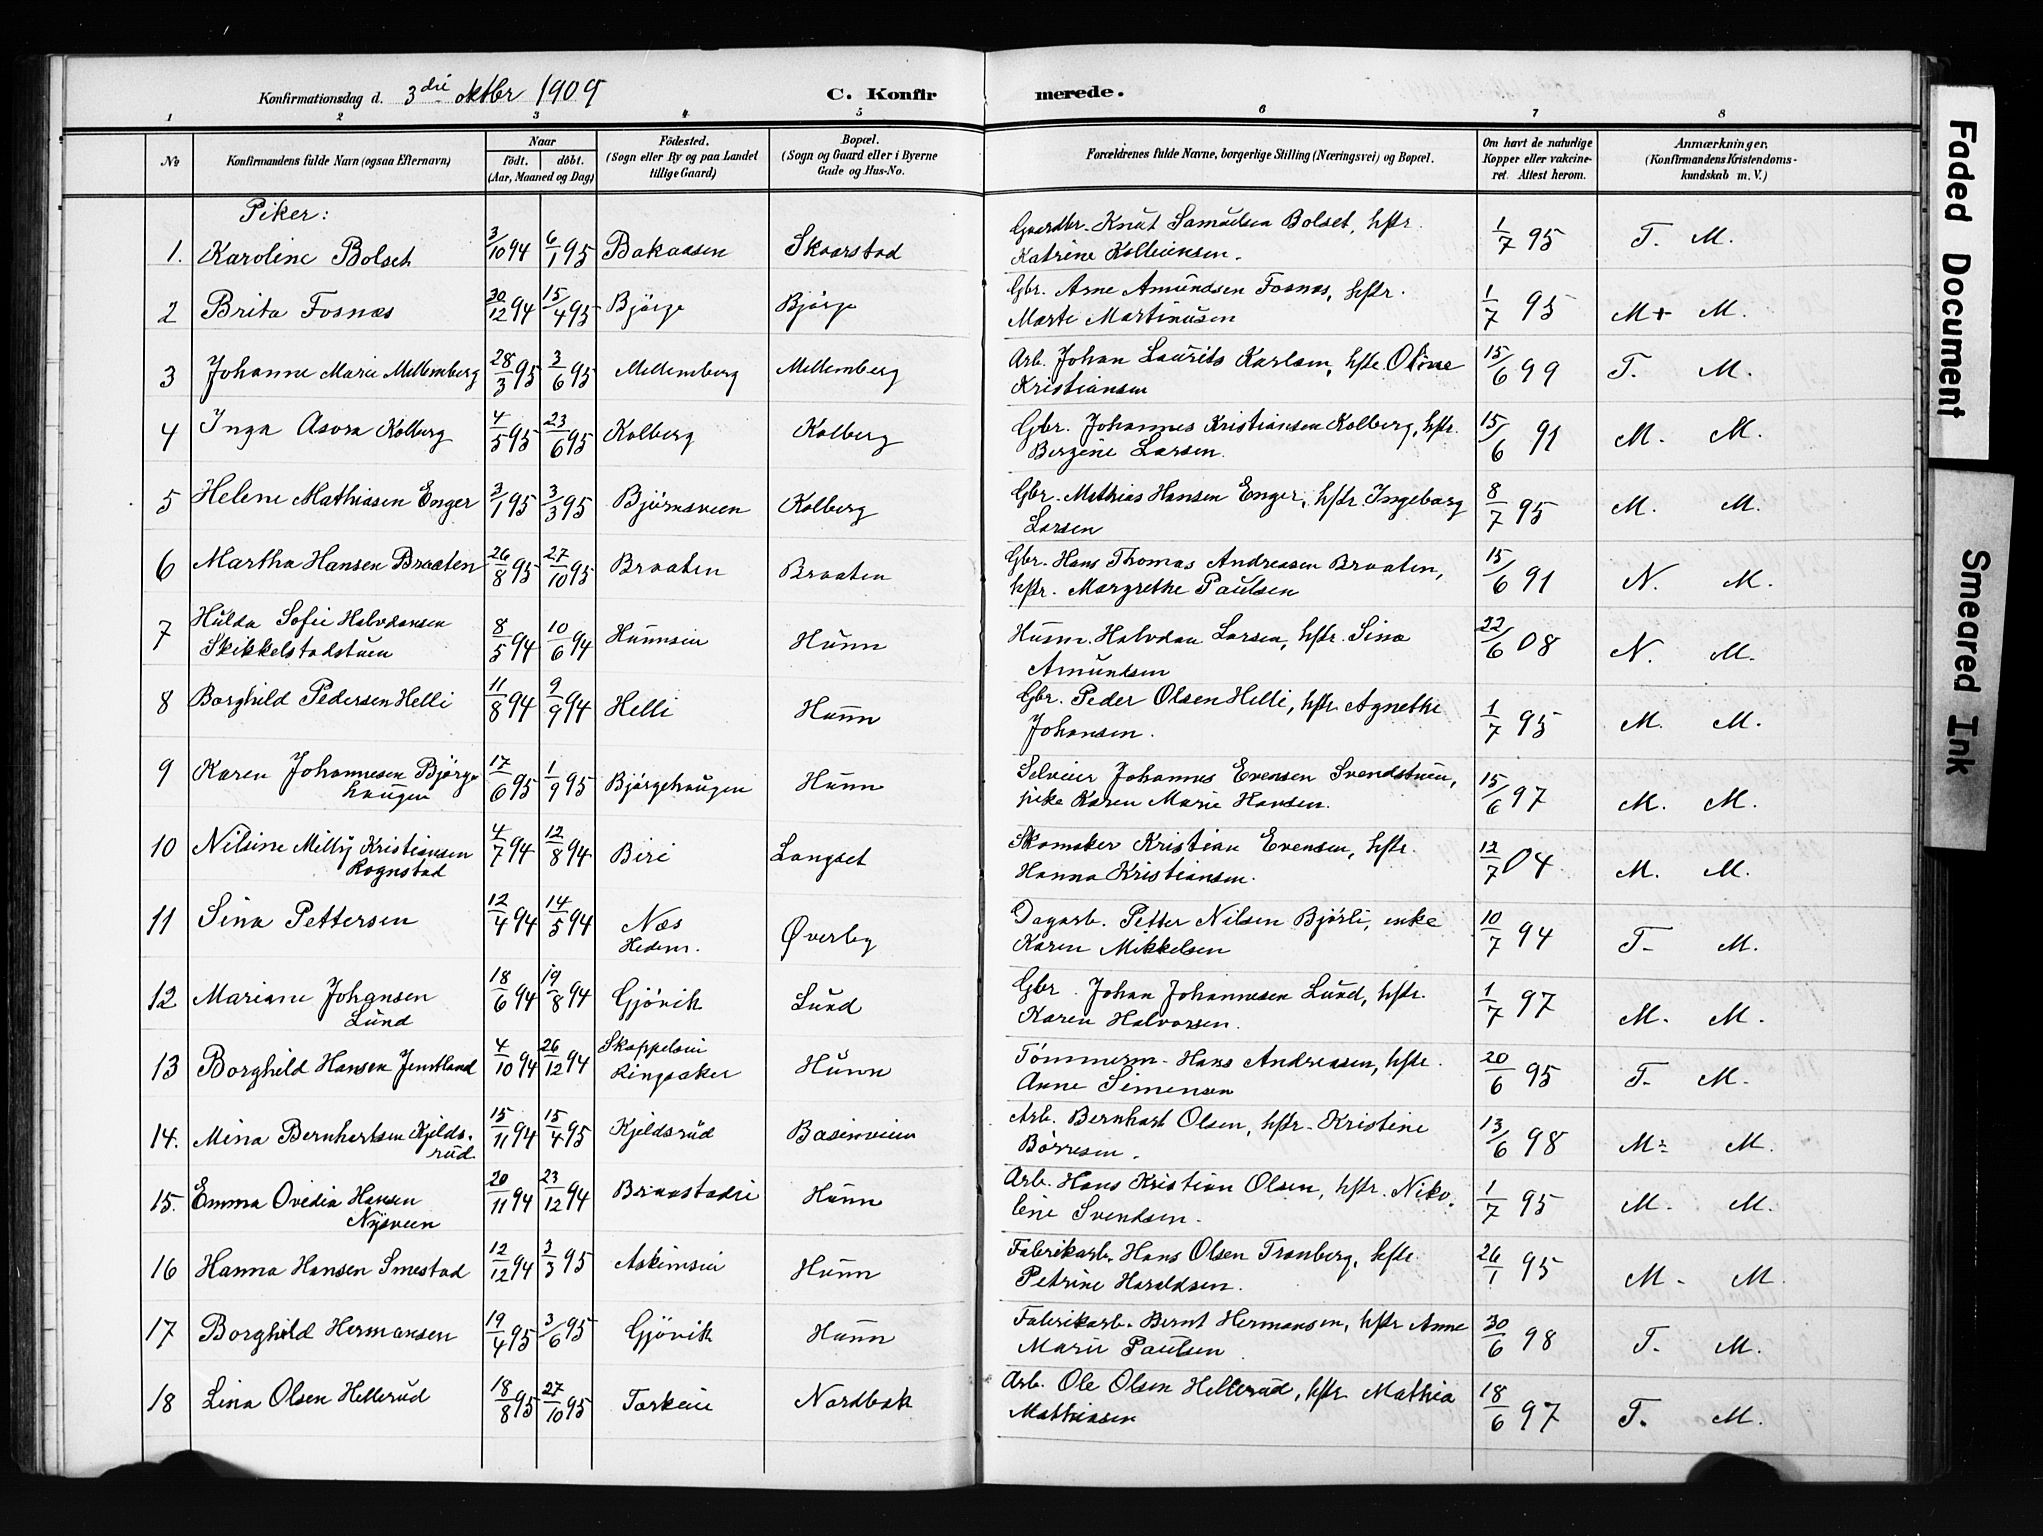 Konfirmationsdag d. 3die oktbr 1909
C. Konfirmerede.
1 2 3 4 5 6 7 8
No
Konfirmandens fulde Navn (ogsaa Efternavn)
Naar
födt. döbt.
(Aar, Maaned og Dag)
Födested.
(Sogn eller By og paa Landet
tillige Gaard)
Bopæl.
(Sogn og Gaard eller i Byerne
Gade og Hus-No.
Forældrenes fulde Navne, borgerlige Stilling (Næringsvei) og Bopæl.
Om havt de naturlige
Kopper eller vakcine-
ret. Attest herom.
Anmærkninger.
(Konfirmandens Kristendoms-
kundskab m. V.)
Piker:
1. Karoline Bolset 3/10 94 6/1 95 Bakaasen Skaarstad Gaardbr. Knut Samuelsen Bolset, hstr.
Katrine 1/7 95 T. M.
2 Brita Fosnæs 30/12 94 15/4 95 Bjørge Bjørge Gbr. Arne Amundsen Fosnæs, hstr.
Marte Martinusen 1/7 95 M+ M.
3 Johanne Marie Mellemberg 28/3 95 3/6 95 Mellemberg Mellemberg Arb. Johan Laurits Karlsen, hstr. Oline
Kristiansen 15/6 99 T. M.
4 Inga Asora Kolberg 4/5 95 23/6 95 Kolberg Kolberg Gbr. Johannes Kristiansen Kolberg, hstr.
Bergine Larsen. 15/6 91 M. M.
5 Helene Mathiasen Enger 3/1 95 3/3 95 Bjørnsveen Kolberg Gbr. Mathias Hansen Enger, hstr. Ingeborg
Larsen 8/7 95 M. M.
6 Martha Hansen Braaten 26/8 95 27/10 95 Braaten Braaten Gbr. Hans Thomas Andreasen Braaten,
hstr. Margrethe Paulsen 15/6 91 N. M.
7 Hulda Sofie Halvdansen
Skikkelstadstuen 8/5 94 10/6 94 Hunnseie Hunn Husm. Halvdan Larsen, hstr. Sina
Amundsen 22/6 08 N. M.
8 Borghild Pedersen Helli 11/8 94 9/9 94 Helli Hunn Gbr. Peder Olsen Helli, hstr. Agnethe
Johansen. 1/7 95 M. M.
9 Karen Johannesen Bjørge
haugen 17/6 95 1/9 95 Bjørgehaugen Hunn Selveier Johannes Evensen Svendstuen,
pike Karen Marie Hansen. 15/6 97 M. M.
10 Nilsine Milly Kristiansen
Rognstad 4/7 94 12/8 94 Biri Langset Skomaker Kristian Evensen, hstr.
Hanna Kristiansen. 12/7 04 M. M.
11 Sina Pettersen 12/4 94 14/5 94 Næs
Hedem. Øverby Dagarb. Petter Nilsen Bjørli, enke
Karen Mikkelsen 10/7 94 T- M.
12 Mariane Johansen
Lund 18/6 94 19/8 94 Gjøvik Lund Gbr. Johan Johannesen Lund, hstr.
Karen Halvorsen. 1/7 97 M. M.
13 Borghild Hansen Jemtland 4/10 94 26/12 94 Skappelseie
Ringsaker Hunn Tømmerm. Hans Andreassen, hstr.
Anne Simensen 20/6 95 T- M.
14. Mina Bernhartsen Kjelds-
rud. 15/11 94 15/4 95 Kjeldsrud Basinveien Arb. Bernhart Olsen, hstr. Kristine
Børresen. 13/6 98 M= M.
15. Emma Ovedia Hansen
Nysveen 20/11 94 23/12 94 Braastadei Hunn Arb. Hans Kristian Olsen, hstr. Niko-
line Svendsen. 1/7 95 M. M.
16 Hanna Hansen Smestad 12/12 94 3/3 95 Askimseie Hunn Fabrikarb. Hans Olsen Tranberg, hstr.
Petrine Haraldsen. 26/1 95 M- M.
17 Borghild Hermansen 19/4 95 3/6 95 Gjøvik Hunn Fabrikarb. Bernt Hermansen, hstr Anne
Marie Paulsen 30/6 98 T. M.
18 Lina Olsen Hellerud 18/8 95 27/10 95 Torkeie Nordbak Arb. Ole Olsen Hellerud, hstr Mathea
Mathiasen 18/6 97 T. M.
Faded Document
Smeared Ink